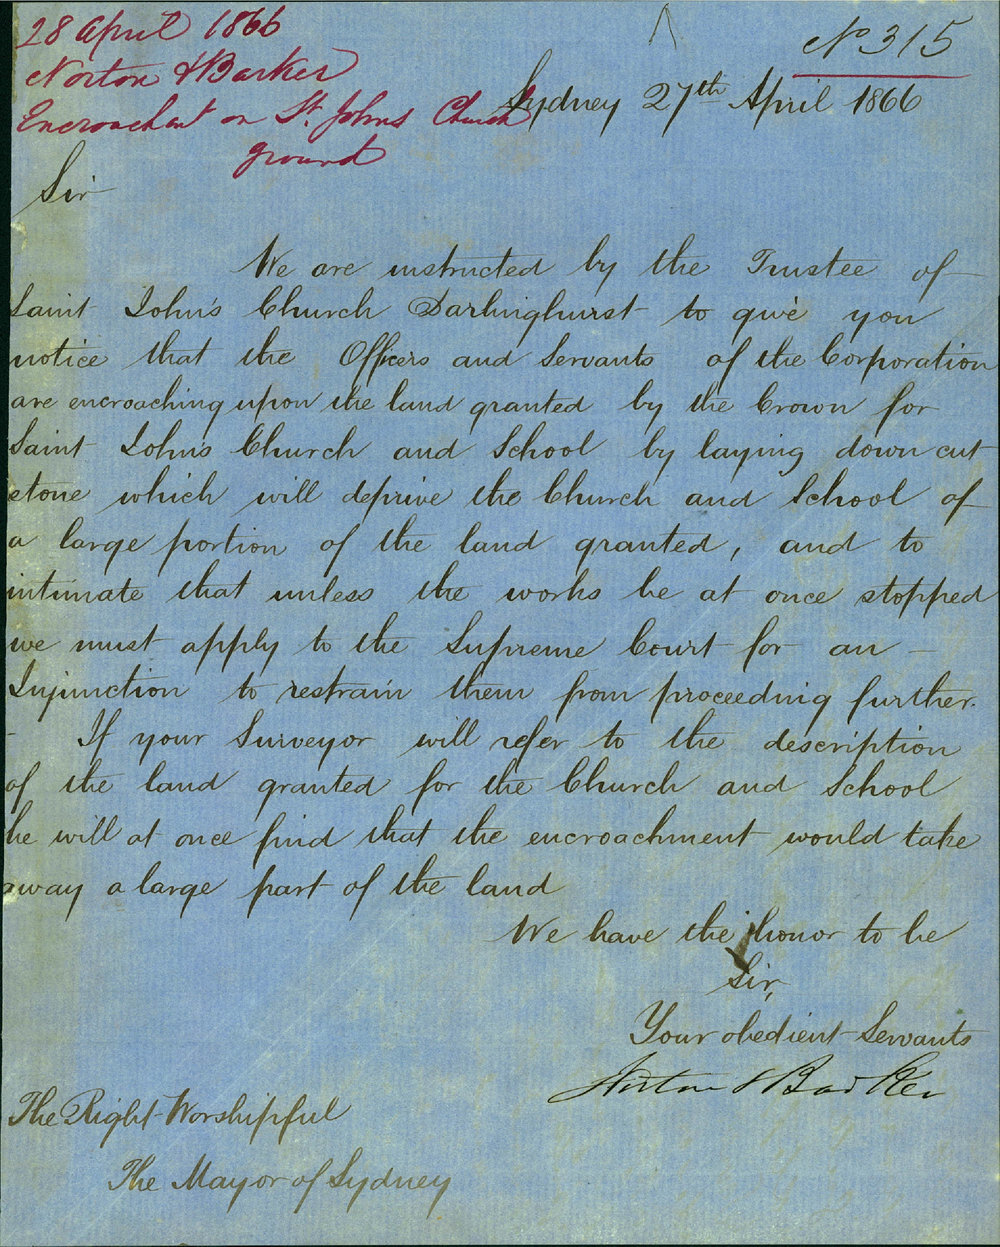 28 April 1866
Norton & Barker
Encroachmt on St. Johns Church
ground
No 315
Sydney 27th April 1866
Sir
We are instructed by the Trustee of
Saint John's Church Darlinghurst to give you
notice that the Officers and Servants of the Corporation
are encroaching upon the land granted by the Crown for
Saint John's Church and School by laying down cut
stone which will deprive the Church and School of
a large portion of the land granted, and to
intimate that unless the works be at once stopped
we must apply to the Supreme Court for an -
Injunction to restrain them from proceeding further.
- If your Surveyor will refer to the description
of the land granted for the Church and School
he will at once find that the encroachment would take
away a large part of the land
We have the honor to be
Sir,
Your obedient Servants
Norton & Barker
The Right Worshipful
The Mayor of Sydney